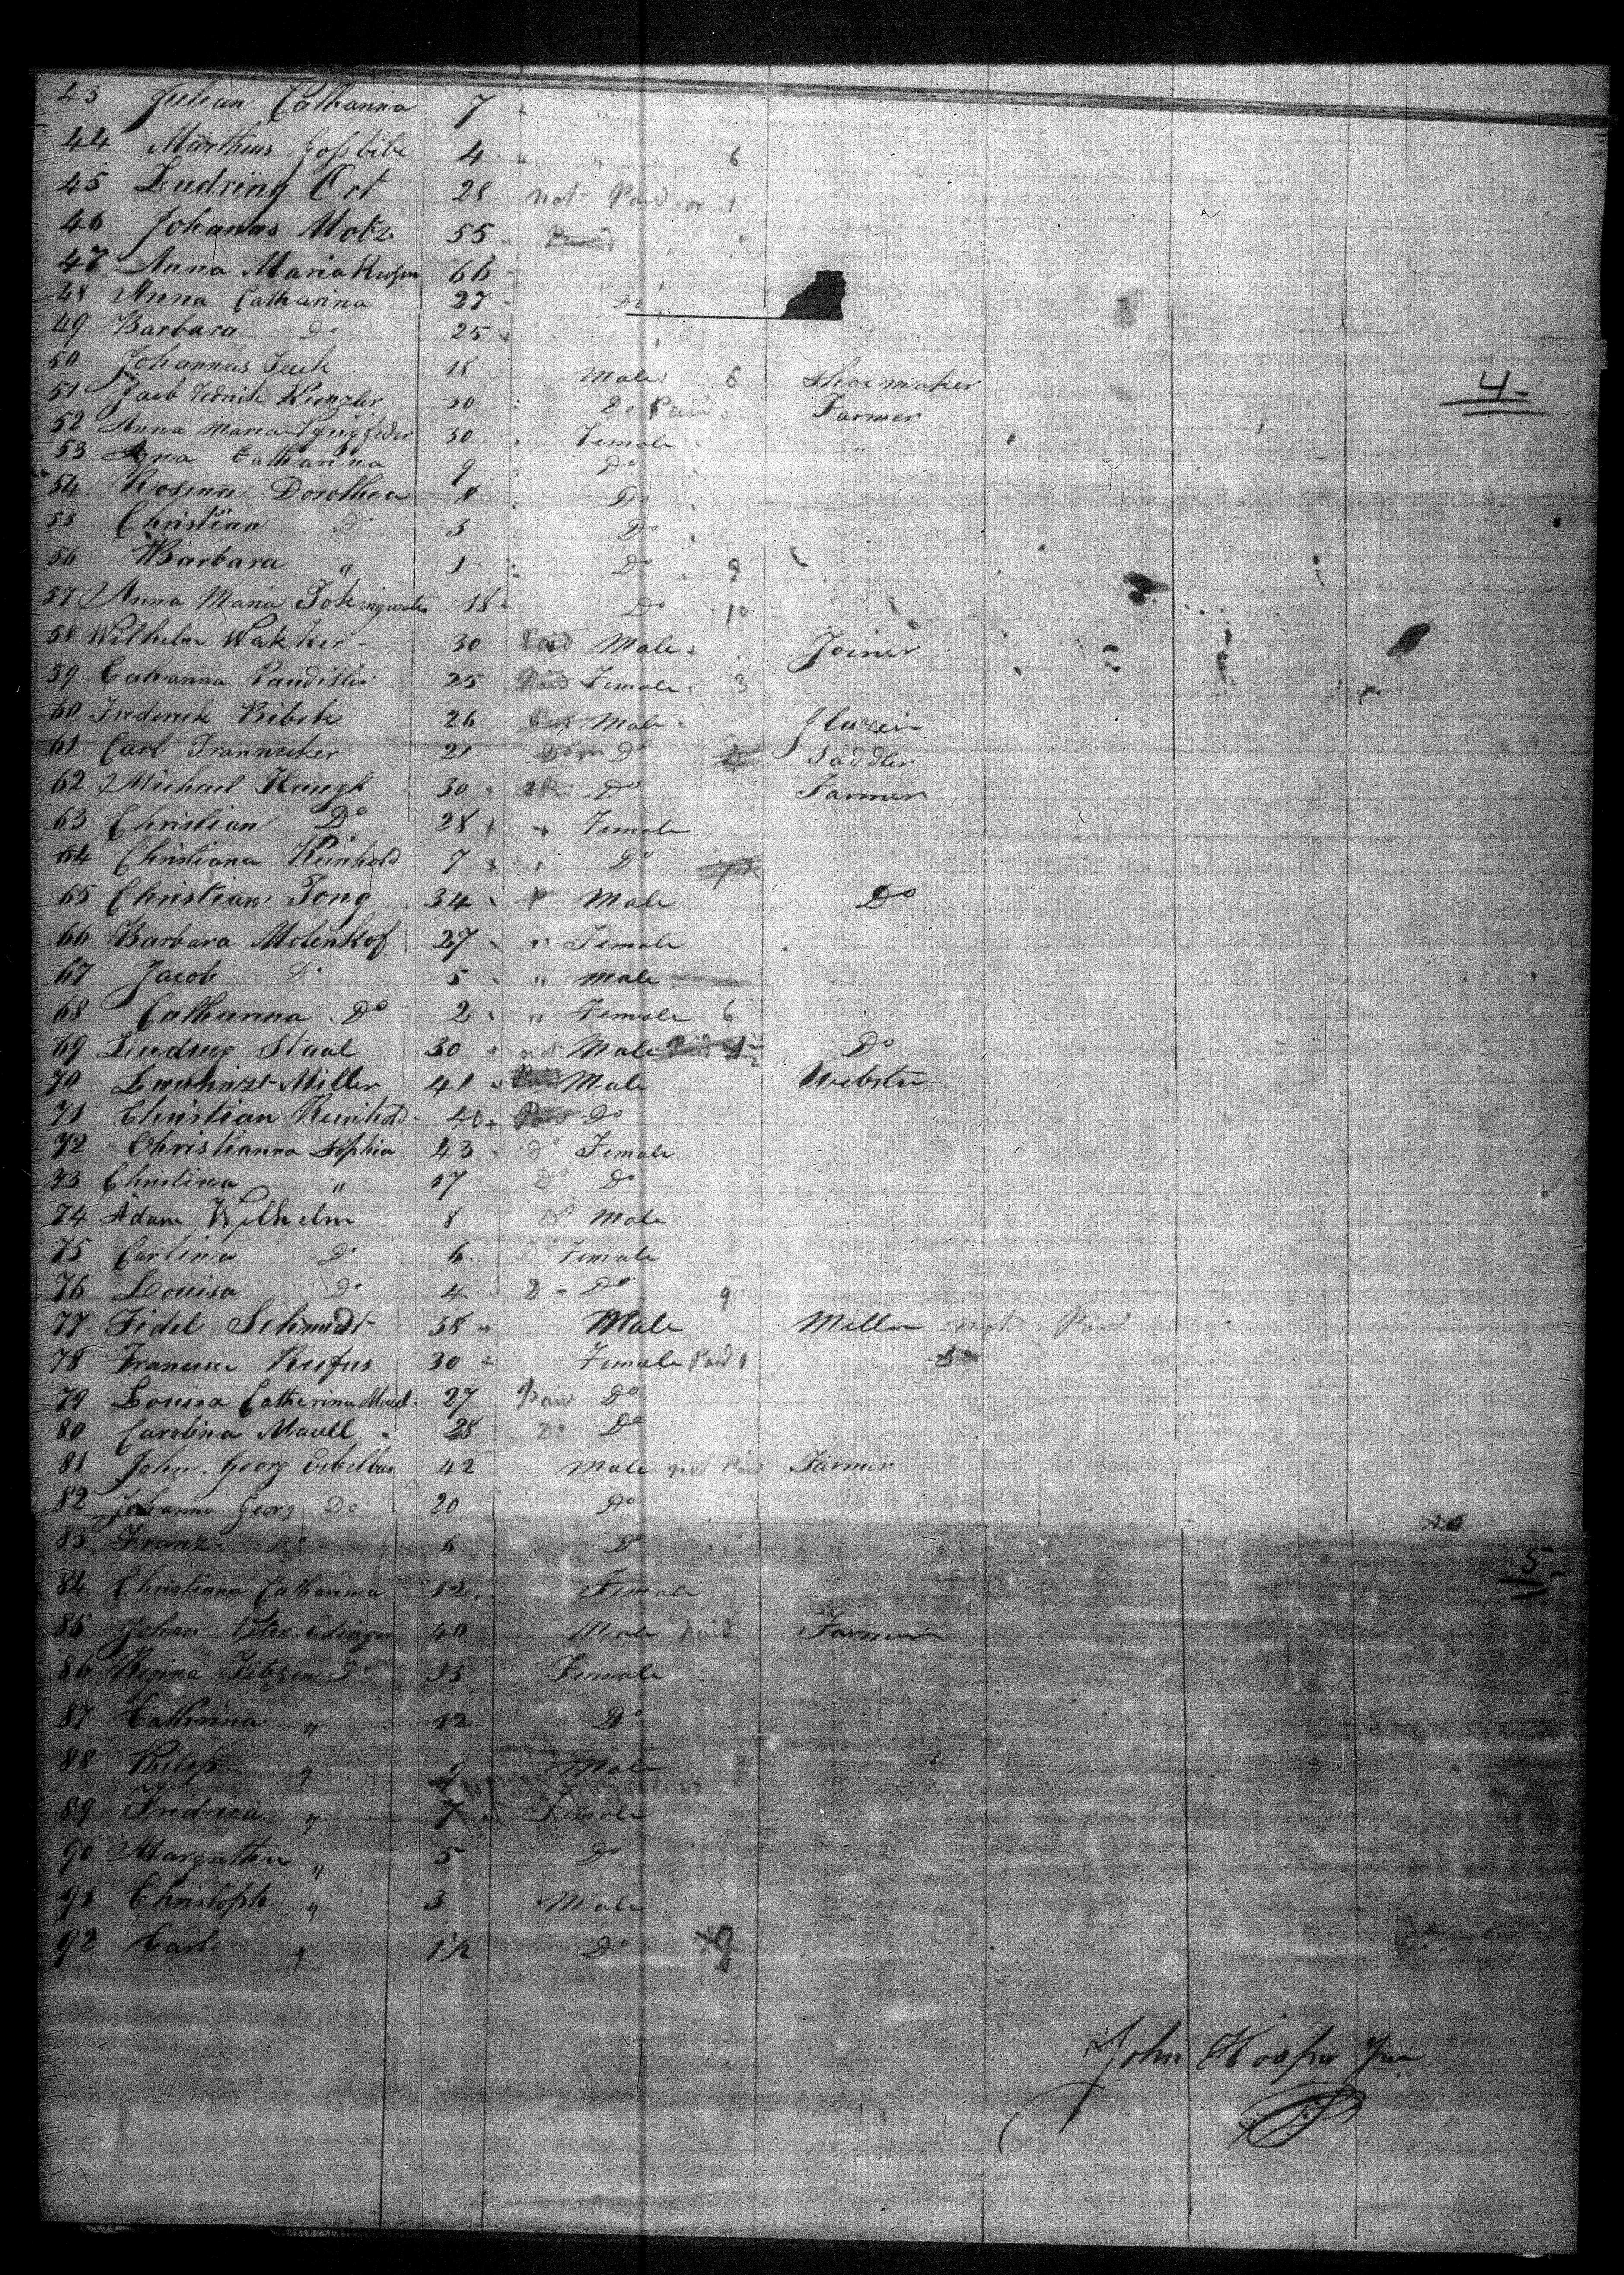 43 Julian Catharina 7 "
44 Martheus Gossbibe 4 " 6
45 Ludring Ort 28 not Paid 1
46 Johanas Motz 55
47 Anna Maria 66
48 Anna Catharina 27 Do
49 Barbara Do 25
50 Johannas 18 Male 6 Shoemaker
51 Jacb Fedrick Kienzler 30 Do Paid Farmer
4
52 Anna Maria 30 Female "
53 Ana Catharina 9 Do
54 Rosina Dorothea 8 Do
55 Christian Do 3 Do
56 Barbara " 1 Do 9
57 Anna Maria 18 Do 10
58 Wilhelm Wakker 30 Paid Male Joiner
59 Catharina 25 Paid Female 3
60 Frederick Ribek 26 Male
61 Carl Trannecker 21 Do Saddler
62 Michael Haugh 30 Do Farmer
63 Christian Do 28 Female
64 Christiana Reinhold 7 " Do
65 Christian Tong 34 P Male Do
66 Barbara Motenkof 27 " Female
67 Jacob Do 5 " Male
68 Catharina Do 2 " Female 6
69 Ludwig Staal 30 not Male Paid Do
70 Miller 41 Male Webster
71 Christian Reinhold 40 Paid Do
72 Christianna Sophia 43 Do Female
73 Christina " 17 Do Do
74 Adam Wilhelm 8 Do Male
75 Carlina Do 6 Do Female
76 Louisa Do 4 Do Do 9
77 Fidel Schmidt 38 Male Miller not Paid
78 Rufus 30 Female Paid 1
79 Louisa Catherina Mauel 27 Paid Do
80 Carolina Mauell 28 Do Do
81 John Georg 42 Male not Paid Farmer
82 Johanna Georg Do 20 Do
83 Franz Do 6 Do
5
84 Christiana Catharina 12 Female
85 Johan Peter Edinger 40 Male Paid Farmer
86 Regina Do 33 Female
87 Catherina " 12 Do
88 " 9 Male
89 Fredrica " 7 Female
90 Margretha " 5 Do
91 Christoph " 3 Male
92 Carl " 1½ Do 9
John Hooper Jun